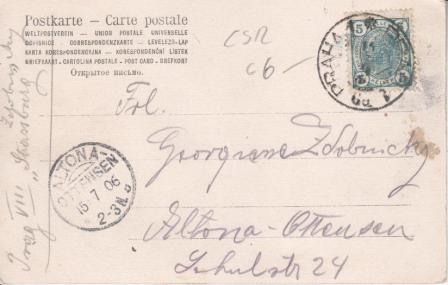 Postkarte – Carte postale
WELTPOSTVEREIN – UNION POSTALE UNIVERSELLE
DOPISNICE – CORRESPONDENZKARTE – LEVELEZŐ-LAP
KARTA KORESPONDENCYJNA – KORESPONDENČNÍ LÍSTEK
BRIEFKAART – CARTOLINA POSTALE – POST CARD – BREFKORT
Открытое письмо.
ČSR
C6 –
5 5
PRAHA
Frl.
Georgiane Zdobnicky
Altona-Ottensen
Schulstr 24
ALTONA-
OTTENSEN
15 7 06
2-3N.
Prag VIII